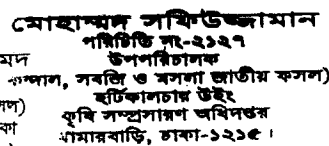 মোহাম্মদ সফিউজ্জামান
পরিচিতি নং-২১২৭
মদ উপপরিচালক
কন্দাল, সবজি ও মসলা জাতীয় ফসল)
হর্টিকালচার উইং
কৃষি সম্প্রসারণ অধিদপ্তর
কা খামারবাড়ি, ঢাকা-১২১৫।